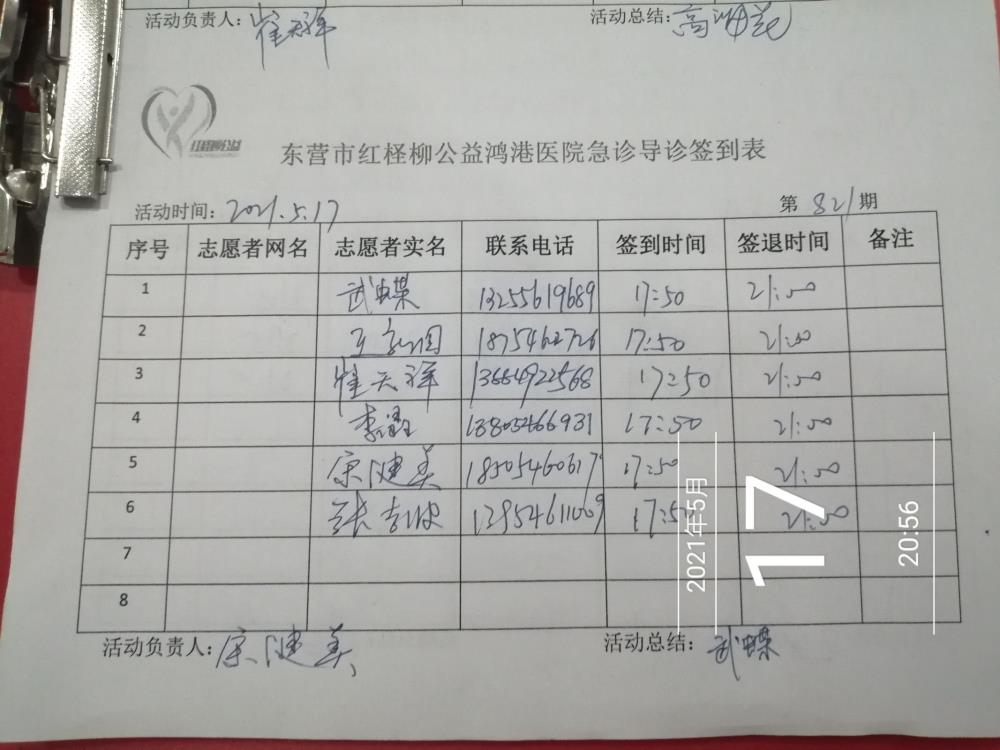 活动负责人：崔天祥 活动总结：高
红柽柳公益
东营市红柽柳公益鸿港医院急诊导诊签到表
活动时间：2021.5.17 第 821 期
序号 志愿者网名 志愿者实名 联系电话 签到时间 签退时间 备注
1 武蝶 13255619689 17:50 21:00
2 王 1875462726 17:50 21:00
3 崔天祥 13684922568 17:50 21:00
4 李 13805466931 17:50 21:00
5 宗健美 18505460617 17:50 21:00
6 张 17:50 21:00
7
8
活动负责人：宗健美 活动总结：武蝶
2021年5月
17
20:56